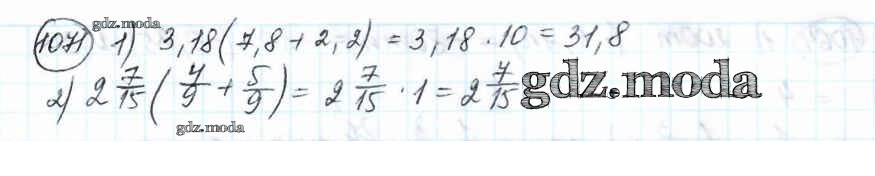 gdz.moda
1071 1) 3,18(7,8+2,2)=3,18·10=31,8
2) 2 7/15 (4/9+5/9)=2 7/15·1=2 7/15 gdz.moda
gdz.moda